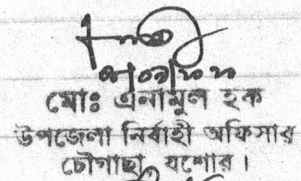 মোঃ এনামুল হক
উপজেলা নির্বাহী অফিসার
চৌগাছা, যশোর।